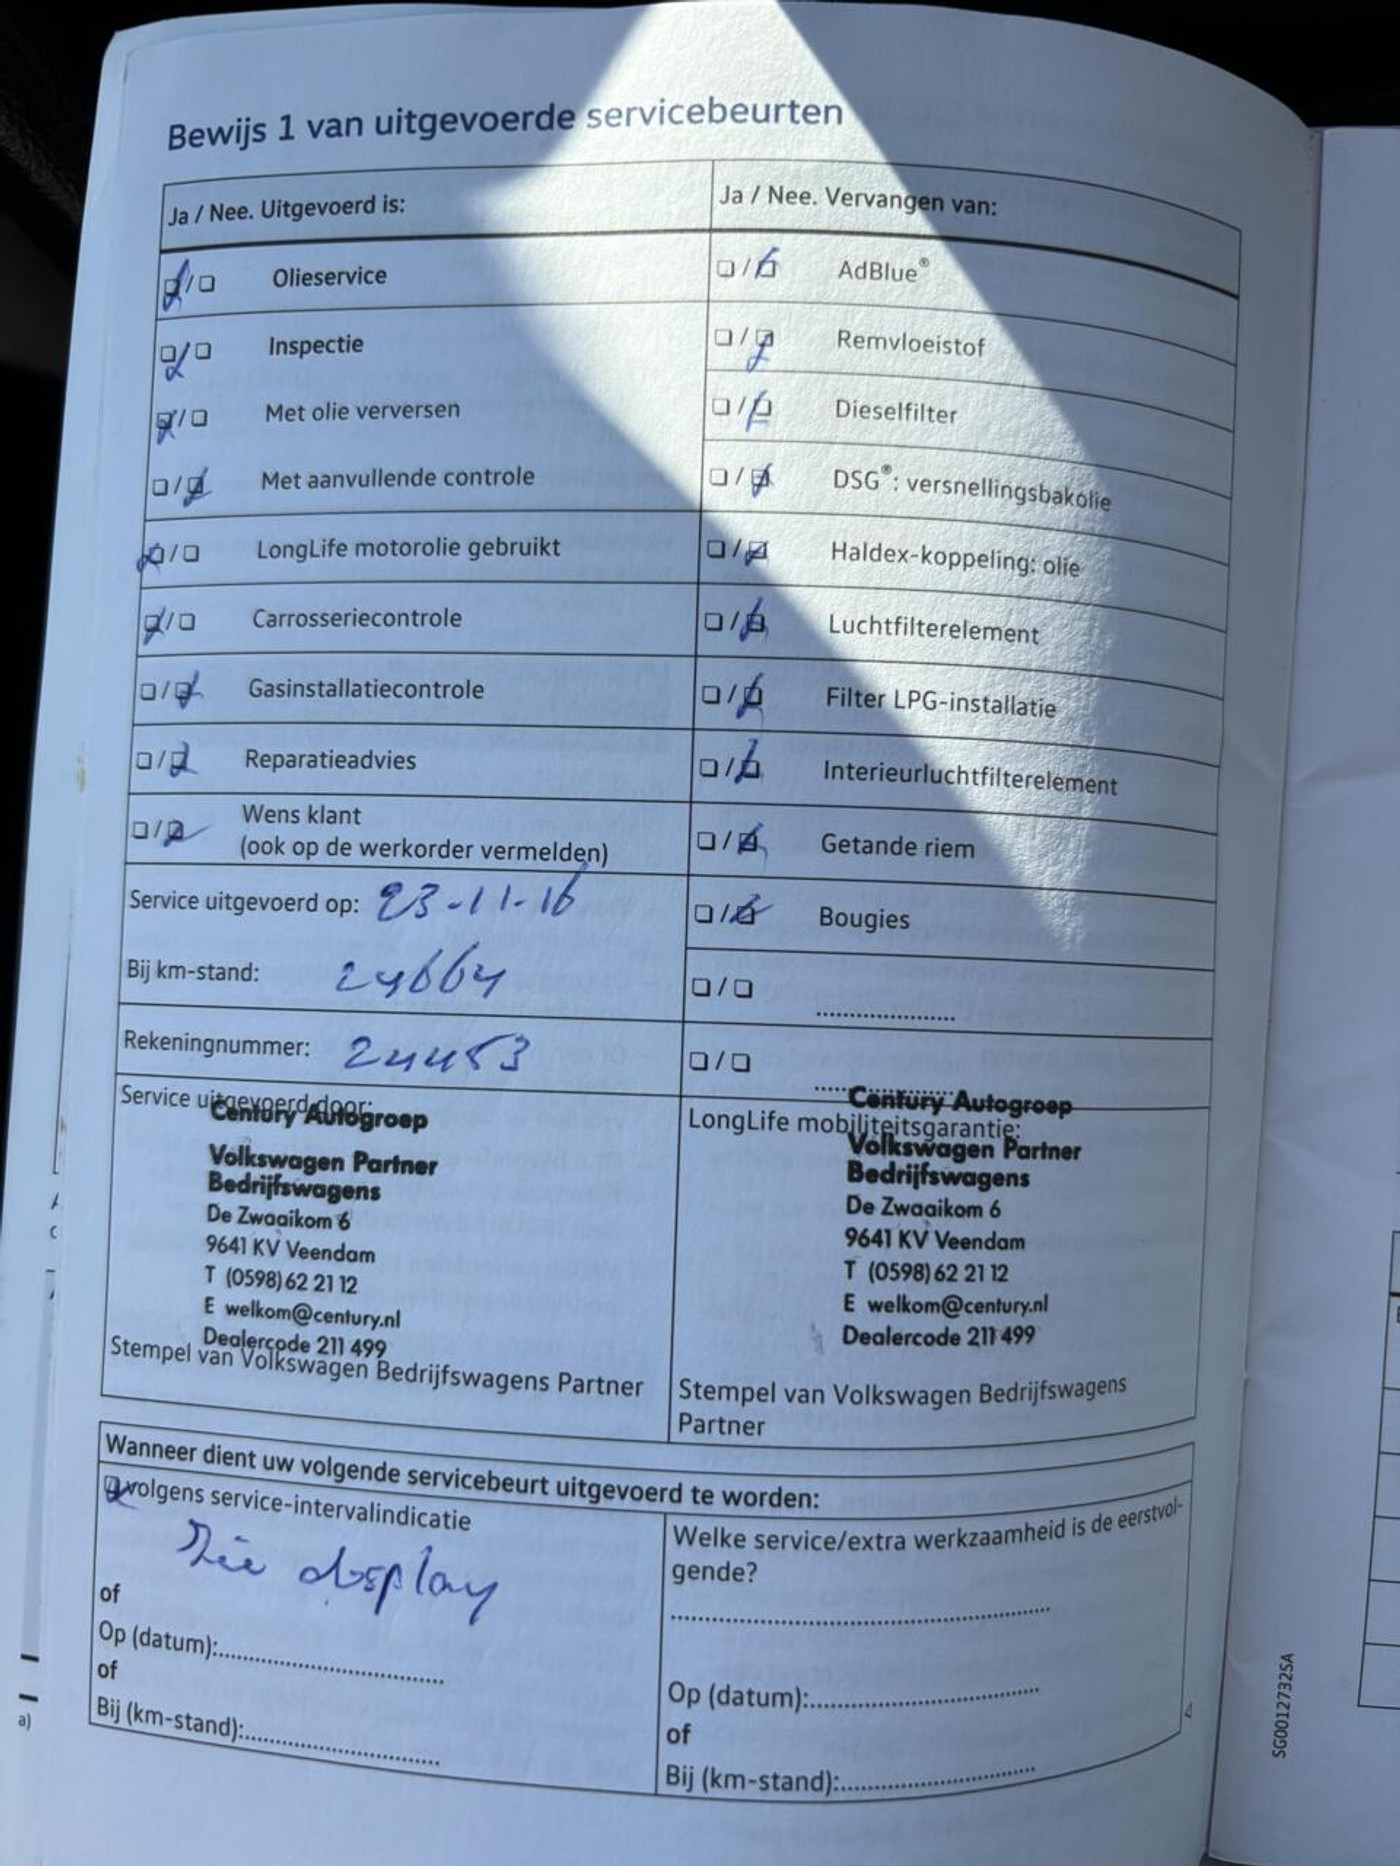 Bewijs 1 van uitgevoerde servicebeurten
Ja / Nee. Uitgevoerd is:
Olieservice
Inspectie
Met olie verversen
Met aanvullende controle
LongLife motorolie gebruikt
Carrosseriecontrole
Gasinstallatiecontrole
Reparatieadvies
Wens klant
(ook op de werkorder vermelden)
Service uitgevoerd op: 23-11-16
Bij km-stand: 24664
Rekeningnummer: 24453
Ja / Nee. Vervangen van:
AdBlue®
Remvloeistof
Dieselfilter
DSG®: versnellingsbakolie
Haldex-koppeling: olie
Luchtfilterelement
Filter LPG-installatie
Interieurluchtfilterelement
Getande riem
Bougies
Service uitgevoerd door:
Century Autogroep
Volkswagen Partner
Bedrijfswagens
De Zwaaikom 6
9641 KV Veendam
T (0598) 62 21 12
E welkom@century.nl
Dealercode 211 499
Stempel van Volkswagen Bedrijfswagens Partner
LongLife mobiliteitsgarantie:
Century Autogroep
Volkswagen Partner
Bedrijfswagens
De Zwaaikom 6
9641 KV Veendam
T (0598) 62 21 12
E welkom@century.nl
Dealercode 211 499
Stempel van Volkswagen Bedrijfswagens
Partner
Wanneer dient uw volgende servicebeurt uitgevoerd te worden:
volgens service-intervalindicatie
Zie display
of
Op (datum):
of
Bij (km-stand):
Welke service/extra werkzaamheid is de eerstvol-
gende?
Op (datum):
of
Bij (km-stand):
SG0012732SA
a)